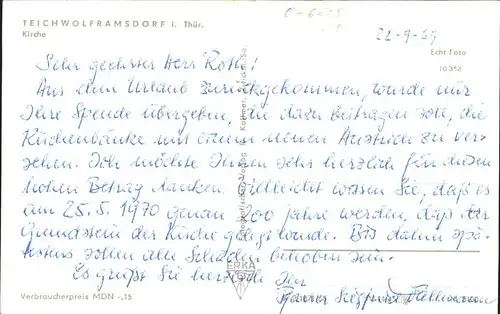 TEICHWOLFRAMSDORF i. Thür.
Kirche
22-9-69
Echt Foto
10352
Sehr geehrter Herr Roth!
Aus dem Urlaub zurückgekommen, wurde mir
Ihre Spende übergeben, die dazu beitragen soll, die
Kirchenbänke mit einem neuen Anstrich zu ver-
sehen. Ich möchte Ihnen sehr herzlich für diesen
hohen Betrag danken. Vielleicht wissen Sie, daß es
am 25.5.1970 genau 200 Jahre werden, daß der
Grundstein der Kirche gelegt wurde. Bis dahin spä-
testens sollen alle Schäden behoben sein.
Es grüßt Sie herzlich Ihr
Pfarrer Siegfried
ERKA
Verbraucherpreis MDN -,15